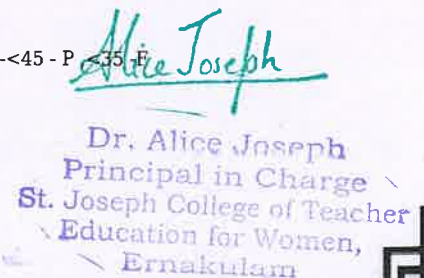 -<45 - P <35 F
Alice Joseph
Dr. Alice Joseph
Principal in Charge
St. Joseph College of Teacher
Education for Women,
Ernakulam